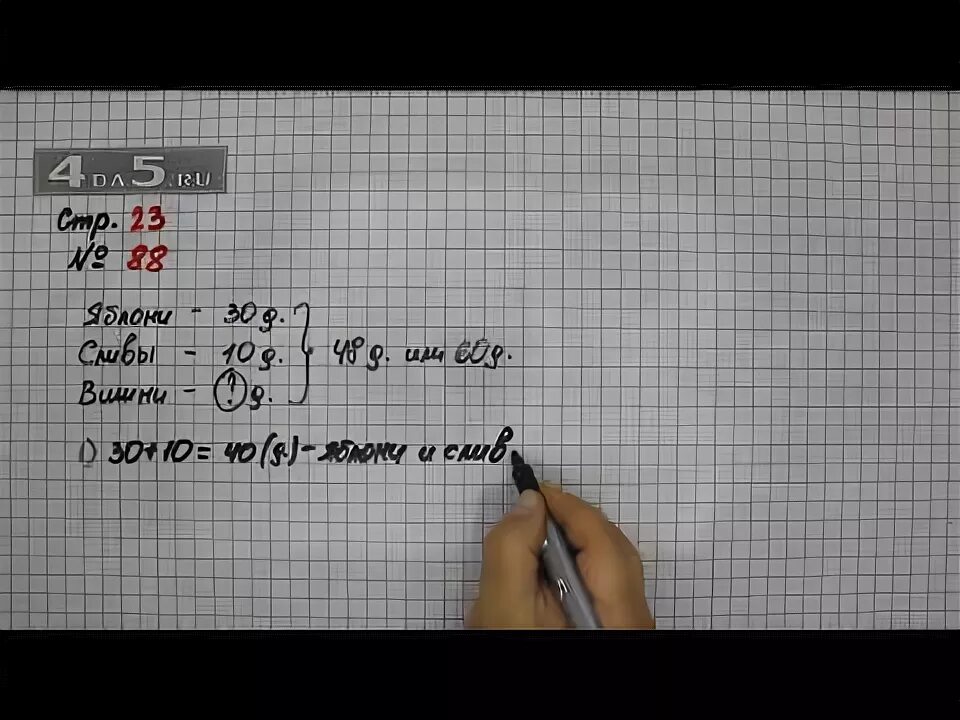 4 DA 5 .RU
Стр. 23
№ 88
Яблони - 30 д.
Сливы - 10 д. } 48 д. или 60 д.
Вишни - ? д.
1) 30+10 = 40 (д.) - яблони и слив